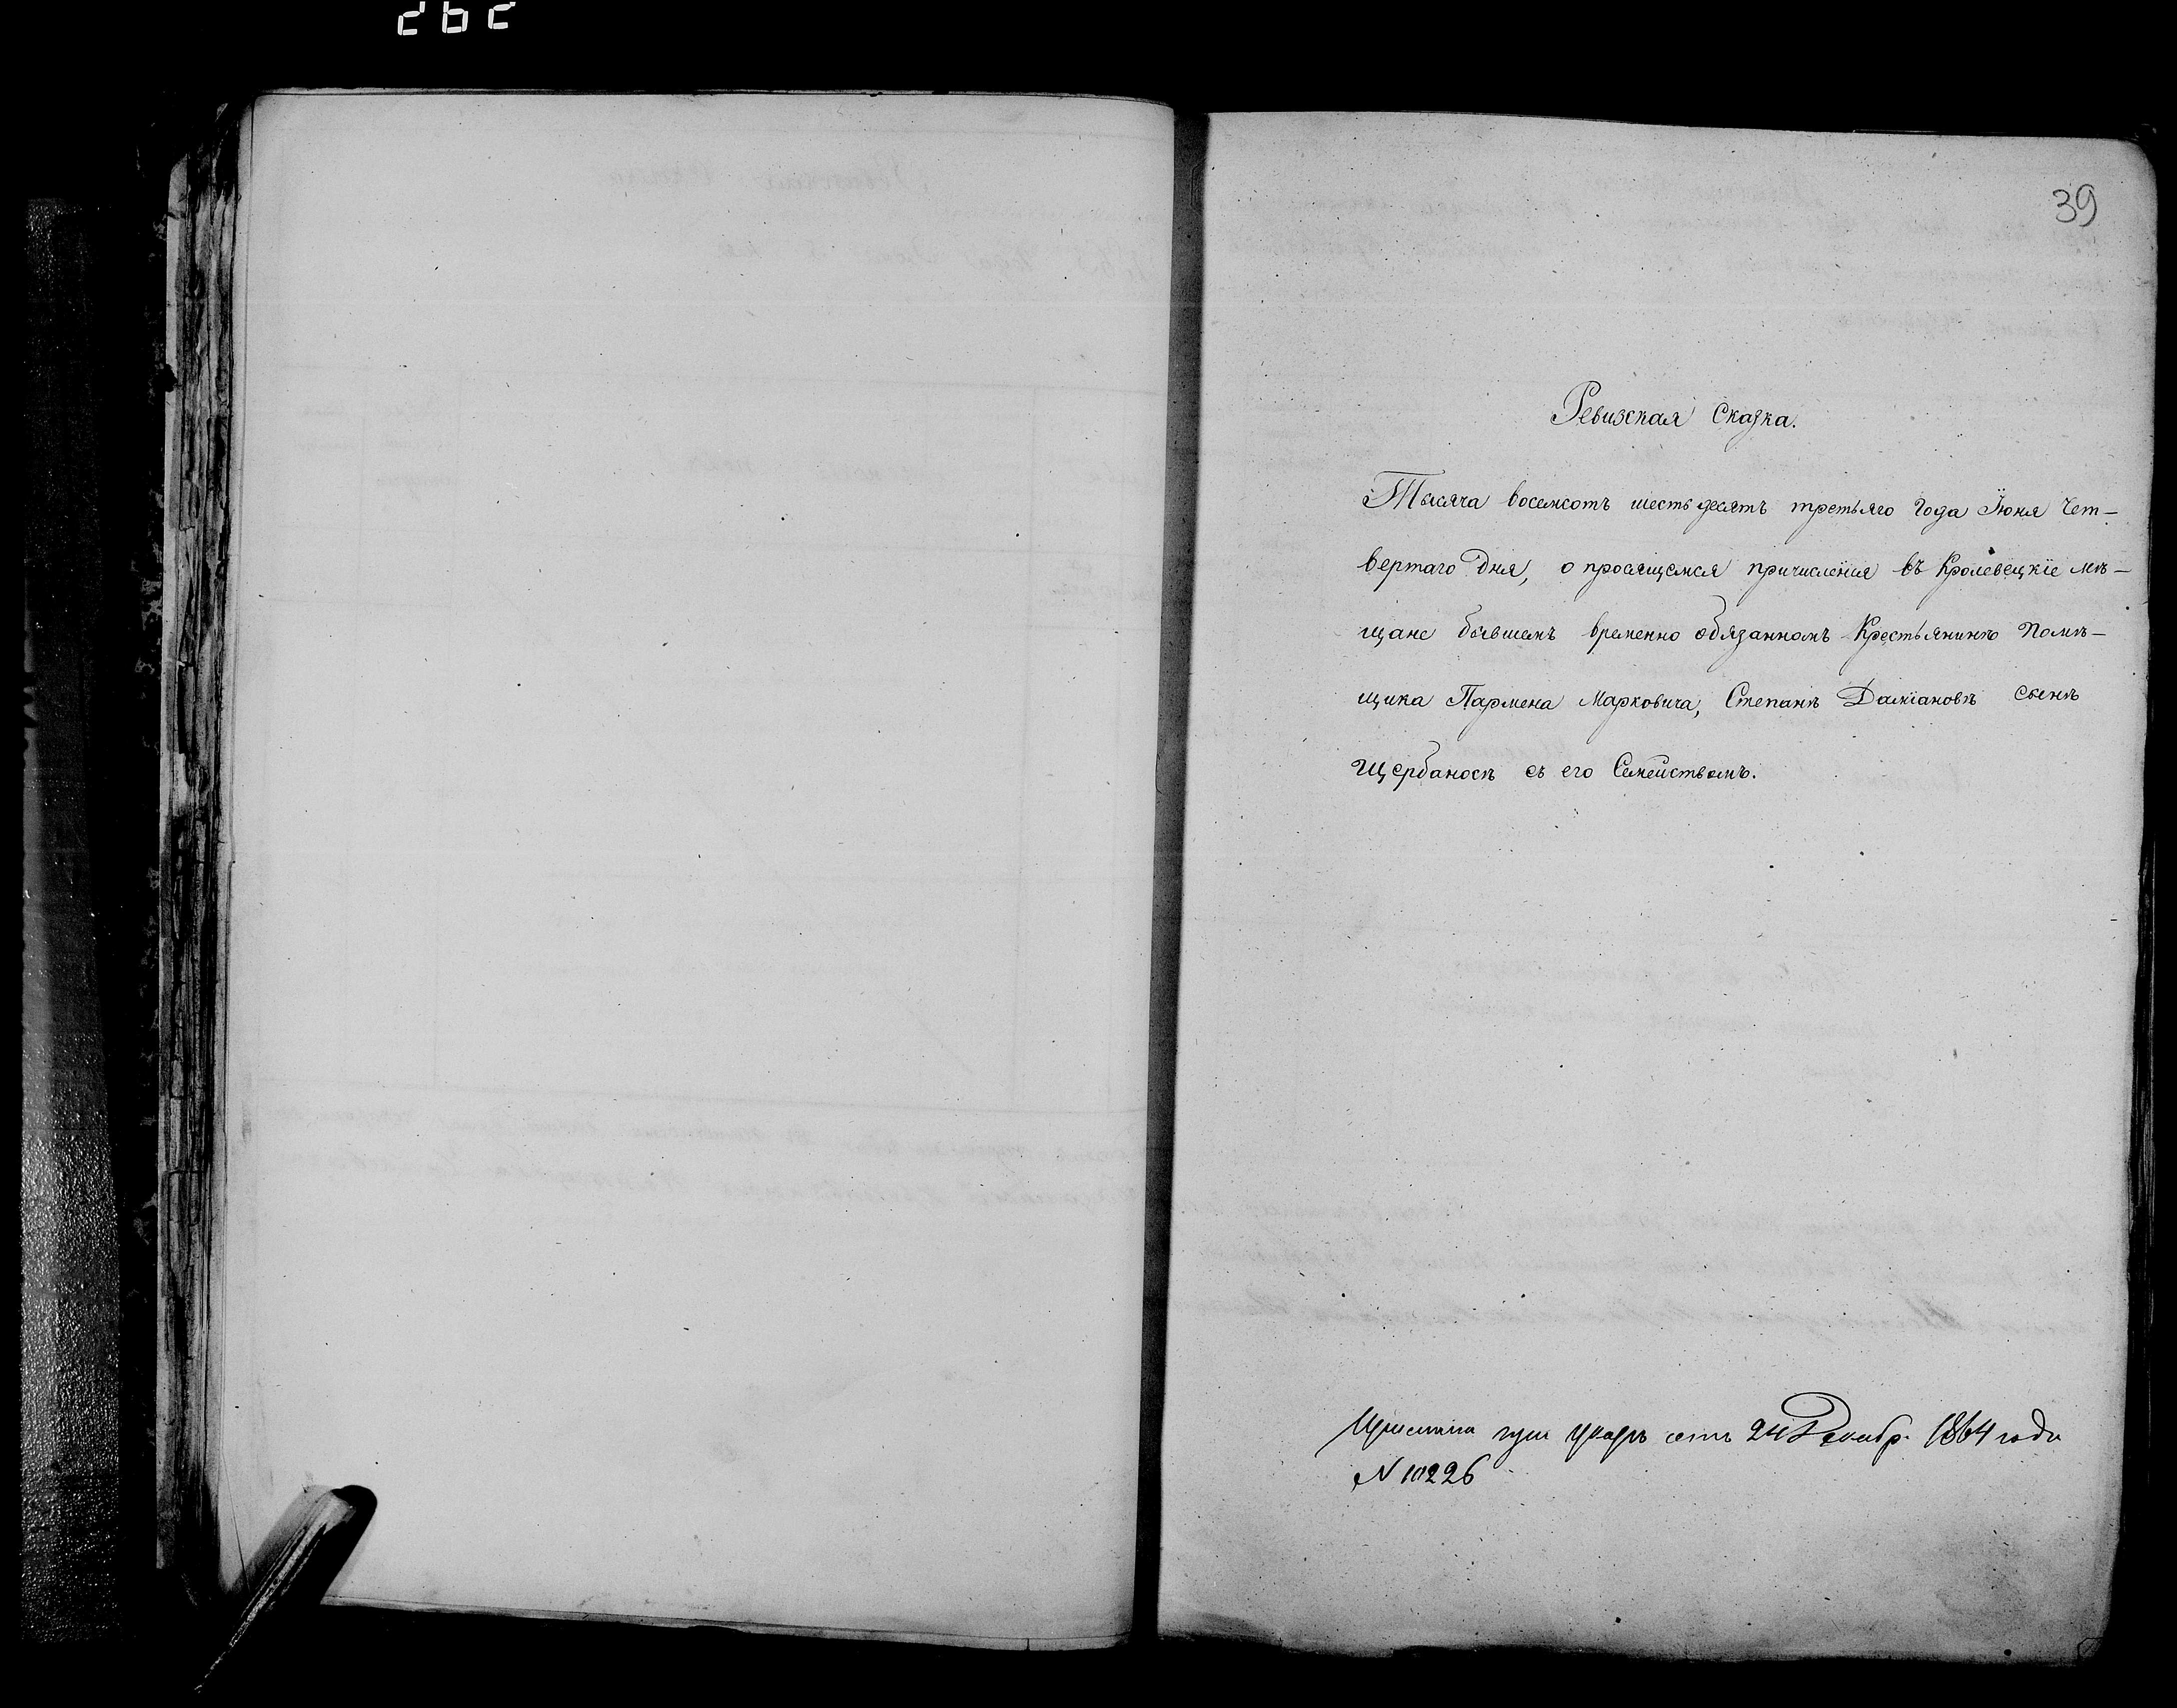 39
Ревизская Сказка.
Тысяча восемсотъ шестьдесятъ третьяго года Іюня Чет-
вертаго дня, о просящемся причисленія въ Кролевецкіе мѣ-
щане бывшемъ временно обязанномъ Крестьянинѣ Помѣ-
щика Пармена Марковича, Степанѣ Даміановѣ сынѣ
Щербаносѣ съ его Семействомъ.
указъ отъ 24 Декабр. 1864 года
N 10226